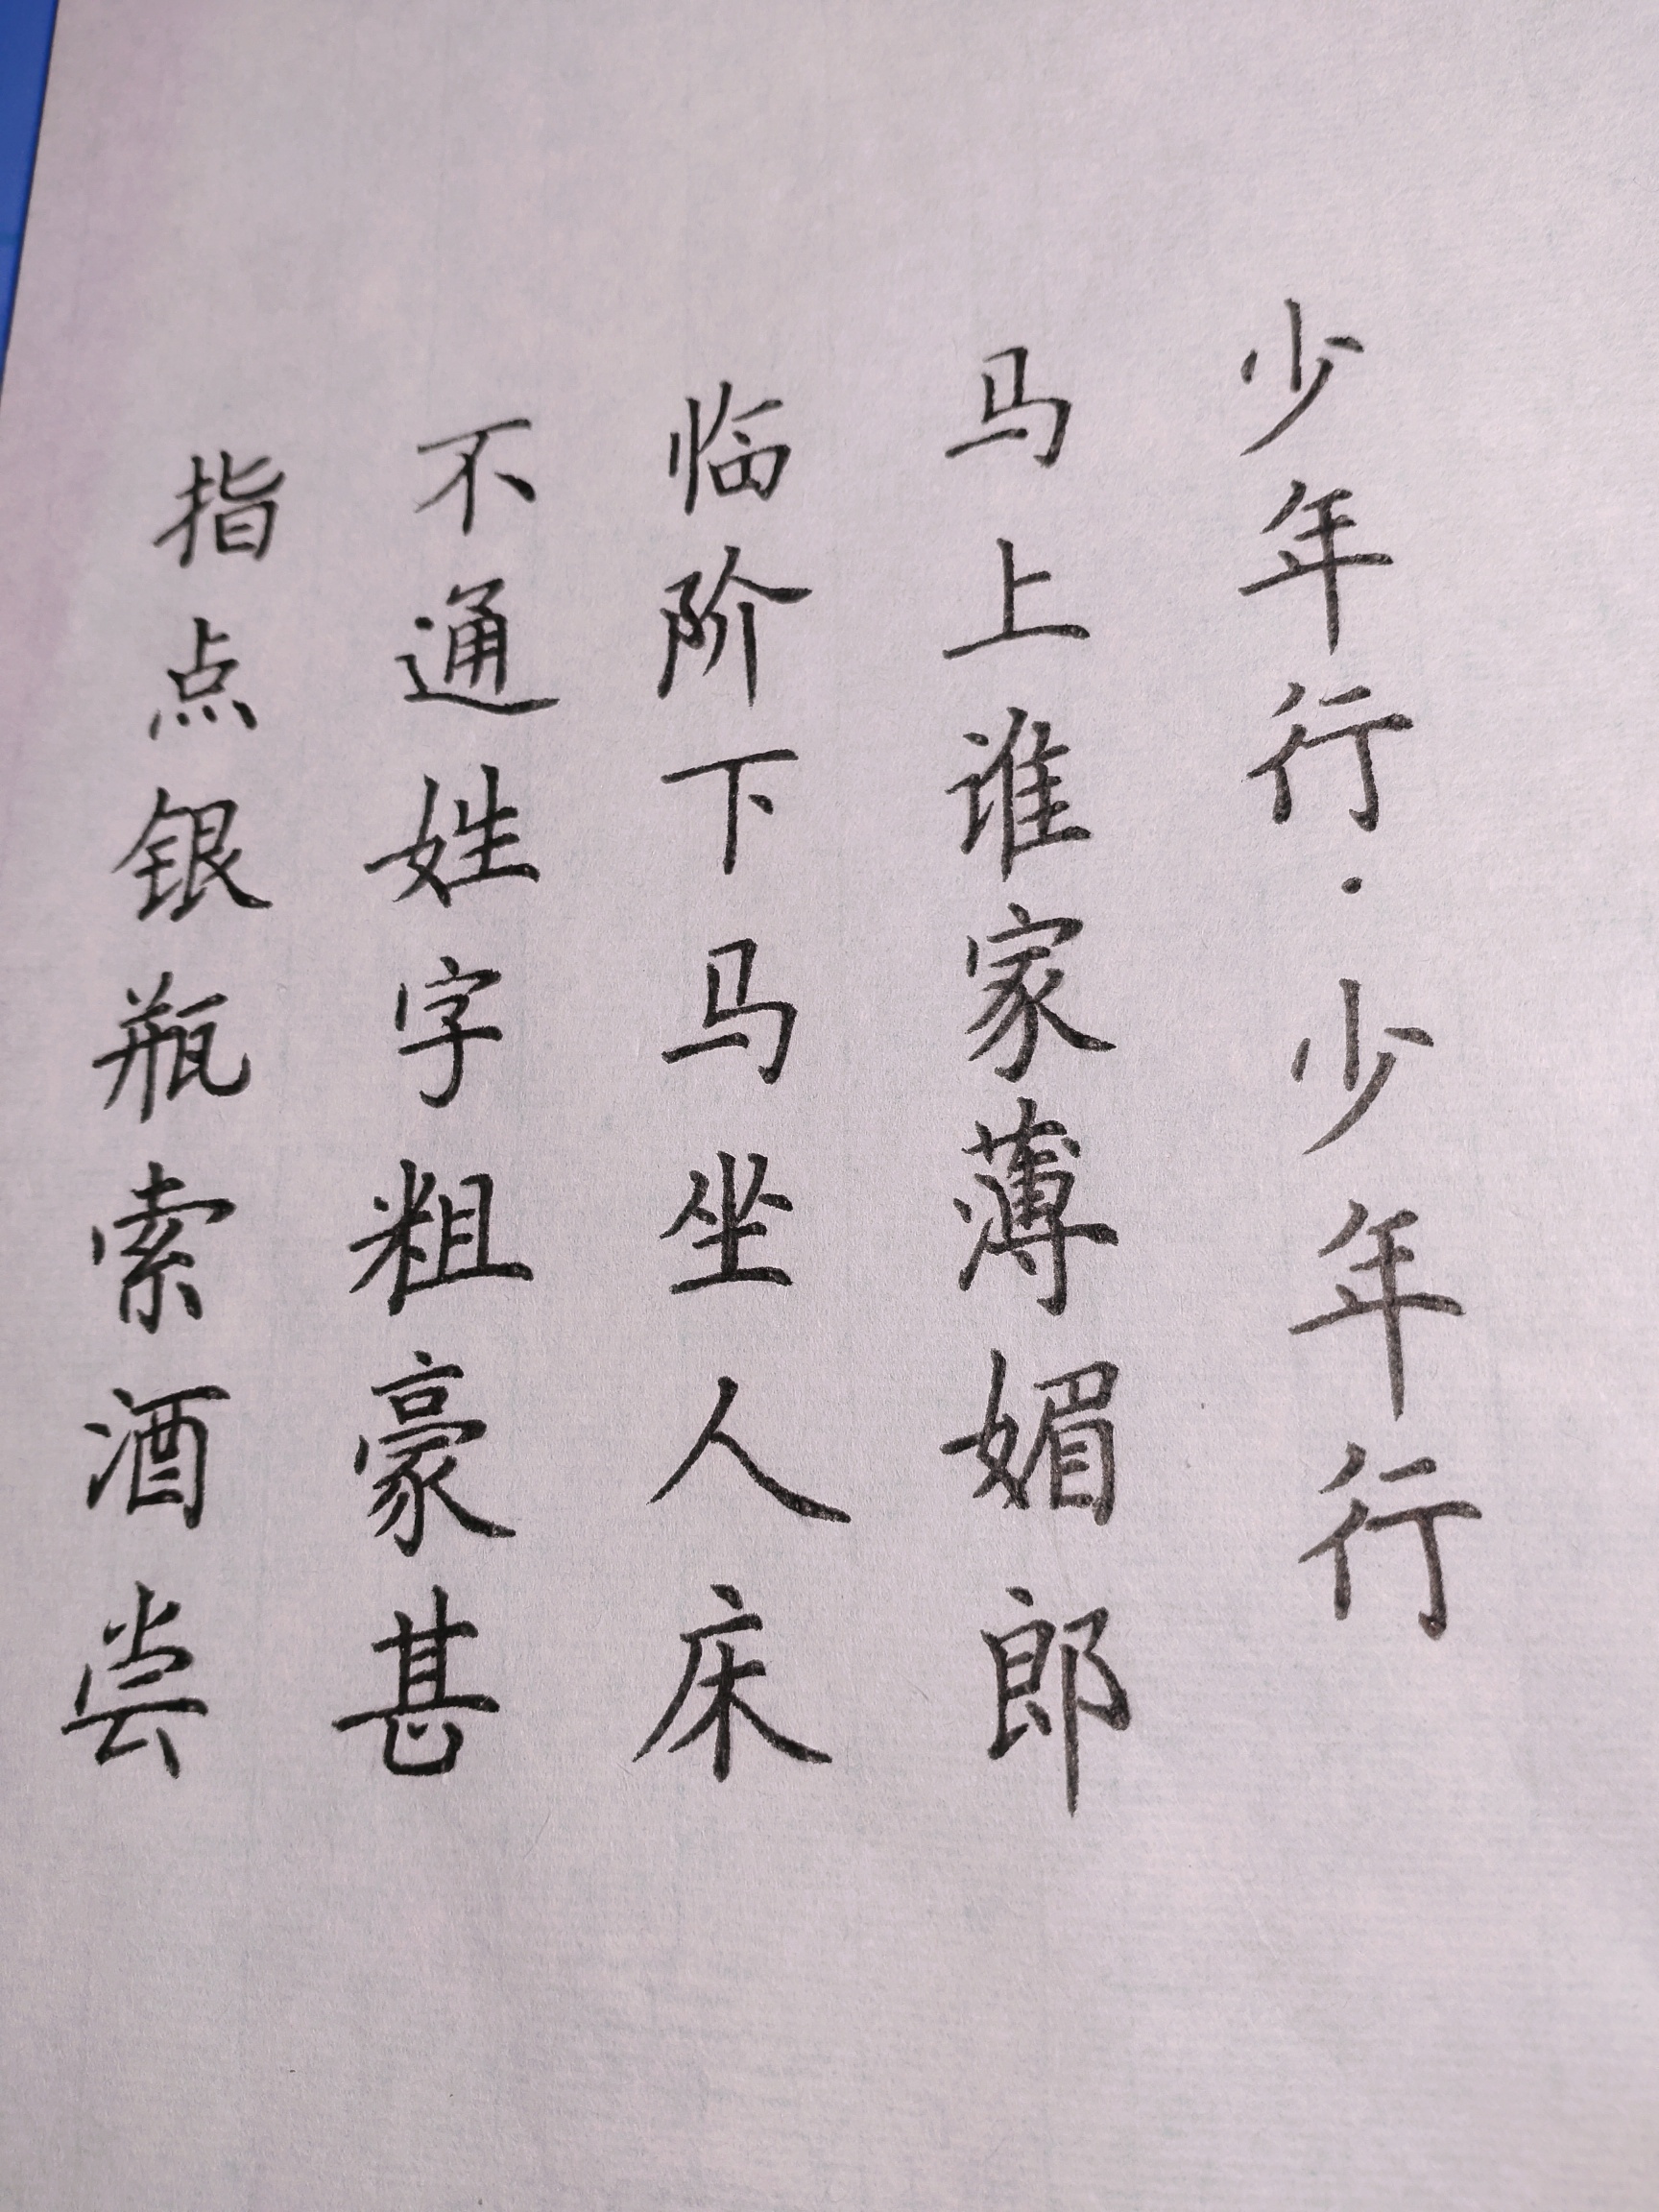 少年行·少年行
马上谁家薄媚郎
临阶下马坐人床
不通姓字粗豪甚
指点银瓶索酒尝